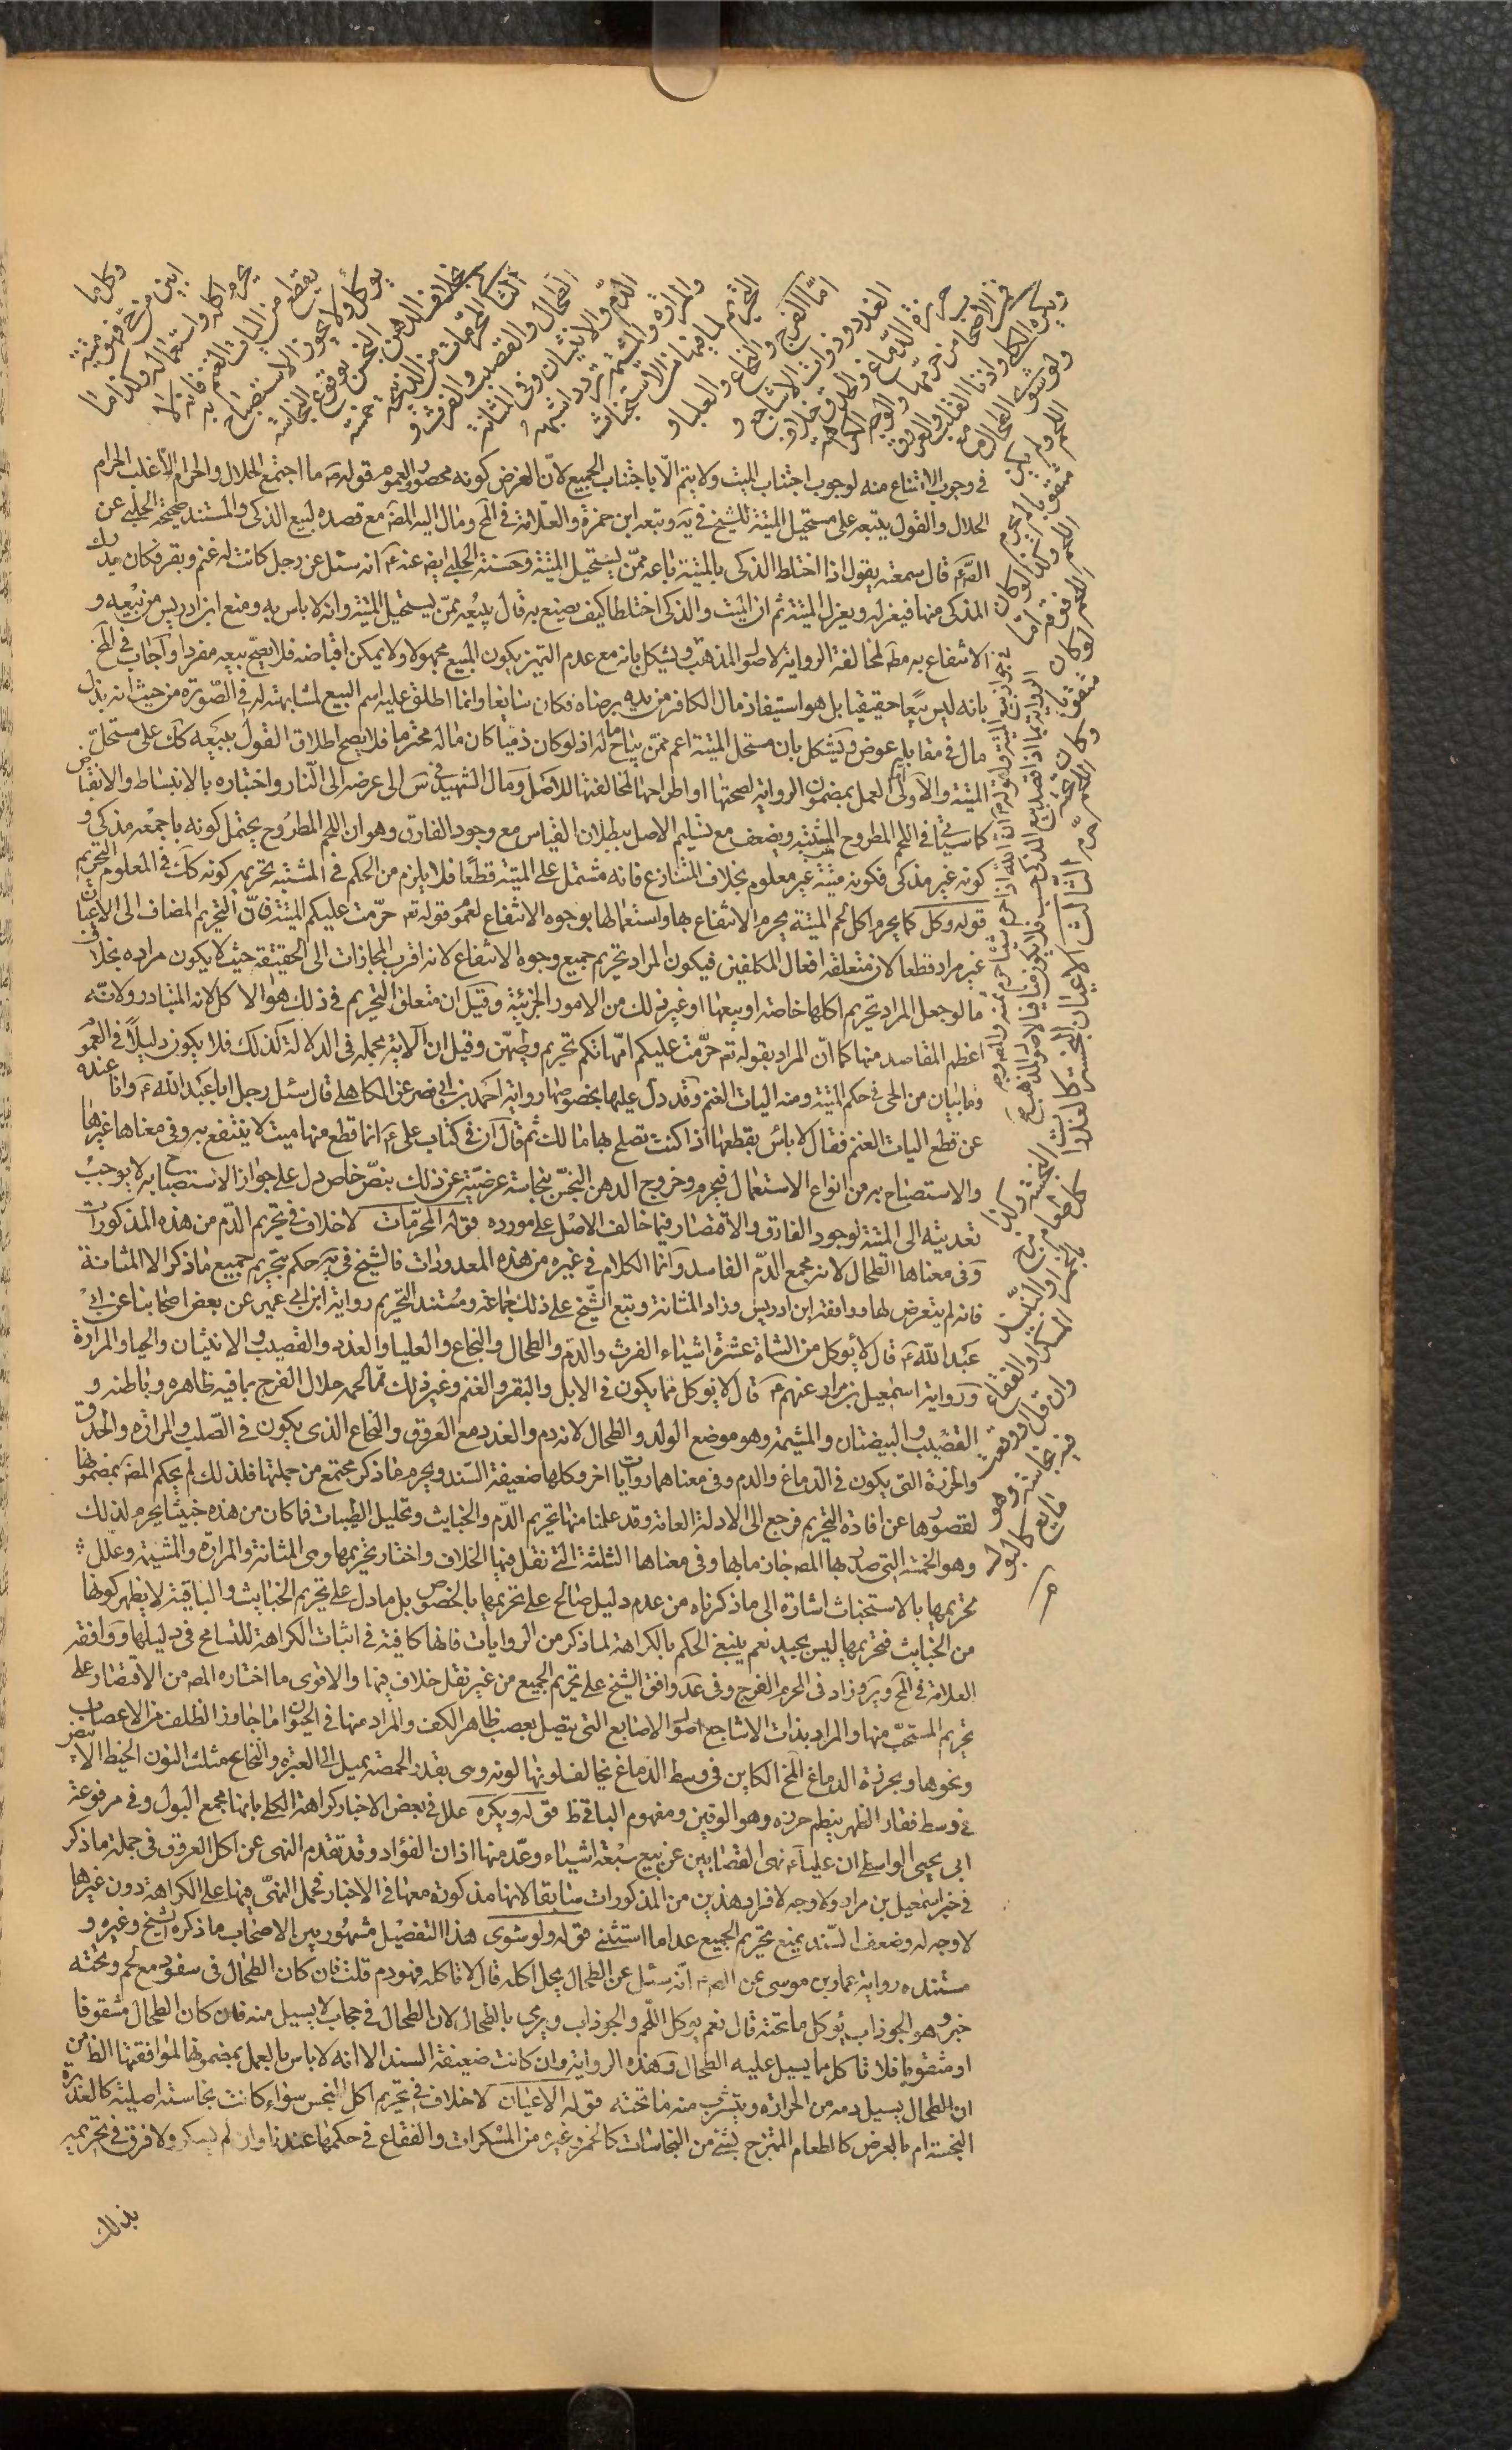 وكل ما
ابين من حي فهو ميتة
يحرم اكله واستعماله وكذا ما
يقطع من اليات الغنم فانه لا
يؤكل ولا يجوز الاستصباح به
بخلاف الدهن النجس بوقوع النجاسة
الثانى المحرمات من الذبيحة خمسة
الطحال والقضيب والفرث و
الدم والانثيان وفى المثانة
والمرارة والمشيمة تردد اشبهه
التحريم لما فيها من الاستخباث
امّا الفرج والنخاع والعلباء و
الغدد وذوات الاشاجع و
خرزة الدماغ والحدق فمن الاصحاب من حرمها والوجه الكراهية
ويكره الكلى واذنا القلب والعروق
ولو شوى الطحال مع
اللحم ولم يكن
مثقوبا لم يحرم
اللحم وكذا لو كان
اللحم فوقه امّا لو كان
مثقوبا
وكان اللحم تحته حرم
الثالث الاعيان النجسة كالعذرات
النجسة وكذا كل طعام مزج
بالخمر او النبيذ
المسكر او الفقاع
وان قل او وقعت
فيه نجاسة وهو
مايع كالبول
فى وجوب الامتناع منه لوجوب اجتناب الميت ولا يتم الّا باجتناب الجميع لانّ الفرض كونه محصورا ولعموم قوله ص ما اجتمع الحلال والحرام الا غلب الحرام
الحلال والقول ببيعه على مستحيل الميتة للشيخ فى ية وتبعه ابن حمزة والعلامة فى المخ ومال اليه المص مع قصده لبيع الذكى والمستند صحيحة الحلبى عن
الص ع قال سمعته يقول اذا اختلط الذكى بالميتة باعه ممّن يستحيل الميتة وحسنة الحلبى ايض عنه ع انه سئل عن رجل كانت له غنم وبقر فكان يدرك
المذكى منها فيعزله ويعزل الميتة ثم ان الميت والذكى اختلطا كيف يصنع به قال يبيعه ممّن يستحيل الميتة وانه لا باس به ومنع ابن ادريس من بيعه و
الانتفاع به مط لمخالفة الرواية لاصول المذهب ويشكل بانه مع عدم التميز يكون المبيع مجهولا ولا يمكن اقباضه فلا يصح بيعه مفردا واجاب فى المخ
بانه ليس بيعا حقيقيا بل هو استيفاذ مال الكافر من يده برضاه فكان سايغا وانما اطلق عليه اسم البيع لمشابهته له فى الصورة من حيث انه بذل
مال فى مقابله عوض ويشكل بان مستحل الميتة اعم ممّن يباح ماله اذ لو كان ذميا كان ماله محترما فلا يصح اطلاق القول ببيعه كك على مستحل
الميتة والاولى اما العمل بمضمون الرواية لصحتها او اطراحها لمخالفتها للاصل ومال الشهيد فى س الى عرضه الى النار واختباره بالانبساط والانقباض
كما سياتى فى اللحم المطروح المشتبه ويضعف مع تسليم الاصل ببطلان القياس مع وجود الفارق وهو ان اللحم المطروح يحتمل كونه باجمعه مذكى و
كونه غير مذكى فكونه ميتة غير معلوم بخلاف المتنازع فانه مشتمل على الميتة قطعا فلا يلزم من الحكم فى المشتبه تحريمه كونه كك فى المعلوم التحريم
قوله وكل كما يحرم اكل لحم الميتة يحرم الانتفاع بها واستعمالها بوجوه الانتفاع لعموم قوله تع حرّمت عليكم الميتة فانّ التحريم المضاف الى الاعيان
غير مراد قطعا لان متعلقه افعال المكلفين فيكون المراد تحريم جميع وجوه الانتفاع لانه اقرب المجازات الى الحقيقة حيث لا يكون مراده بخلاف
ما لو جعل المراد تحريم اكلها خاصة او بيعها او غير ذلك من الامور الجزئية وقيل ان متعلق التحريم فى ذلك هو الاكل لانه المتبادر ولانّه
اعظم المقاصد منها كما انّ المراد بقوله تع حرّمت عليكم امّهاتكم تحريم وطيهنّ وقيل ان الاية مجملة فى الدلالة كذلك فلا يكون دليلا فى العموم
وما يبان من الحى فى حكم الميتة ومنه اليات الغنم وقد دل عليها بخصوصها رواية احمد بن ابى نصر عن الكاهلى قال سئل رجل ابا عبد الله ع وانا عنده
عن قطع اليات الغنم فقال لا باس بقطعها اذا كنت تصلح بها مالك ثم قال ان فى كتاب على ع انما قطع منها ميت لا ينتفع به وفى معناها غيرها
والاستصباح به من انواع الاستعمال فيحرم وخروج الدهن النجس بنجاسة عرضيّة عن ذلك بنصّ خاص دل على جواز الاستصباح به لا يوجب
تعديته الى الميتة لوجود الفارق والاقتصار فيما خالف الاصل على مورده قوله المحرّمات لا خلاف فى تحريم الدّم من هذه المذكورات
وفى معناها الطحال لانه مجمع الدّم الفاسد وانما الكلام فى غيره من هذه المعدودات فالشيخ فى ية حكم بتحريم جميع ماذكر الا المثانة
فانه لم يتعرض لها ووافقه ابن ادريس وزاد المثانة وتبع الشيخ على ذلك جماعة ومستند التحريم رواية ابن ابى عمير عن بعض اصحابنا عن ابى
عبد الله ع قال لا يؤكل من الشاة عشرة اشياء الفرث والدم والطحال والنخاع والعلباء والغدد والقضيب والانثيان والحياء والمرارة
ورواية اسمعيل بن مرار عنهم ع قال لا يؤكل مما يكون فى الابل والبقر والغنم وغير ذلك مما لحمه حلال الفرج بما فيه ظاهره وباطنه و
القضيب والبيضتان والمشيمة وهو موضع الولد والطحال لانه دم والغدد مع العروق والنخاع الذى يكون فى الصلب والمرارة والحدق
والخرزة التى يكون فى الدماغ والدم وفى معناهما روايات اخر وكلها ضعيفة السند ويحرم ماذكر مجتمع من جملتها فلذلك لم يحكم المص بمضمونها
لقصورها عن افادة التحريم فرجع الى الادلة العامة وقد علمنا منها تحريم الدّم والخبايث وتحليل الطيبات فما كان من هذه خبيثا يحرم لذلك
وهو الخمسة التى صدر بها المص جازما بها وفى معناها الثلثة التى نقل فيها الخلاف واختار تحريمها وهى المثانة والمرارة والمشيمة وعلل
تحريمها بالاستخباث اشارة الى ماذكرناه من عدم دليل صالح على تحريمها بالخصوص بل مادل على تحريم الخبايث والباقية لا يظهر كونها
من الخبايث فتحريمها ليس بجيد نعم ينبغى الحكم بالكراهة لما ذكر من الروايات فانها كافية فى اثبات الكراهة للتسامح فى دليلها ووافقه
العلامة فى المخ وير وزاد فى المحرم الفرج وفى عد وافق الشيخ على تحريم الجميع من غير نقل خلاف فيها والاقوى ما اختاره المص من الاقتصار على
تحريم المستخبث منها والمراد بذات الاشاجع اصول الاصابع التى يتصل بعصب ظاهر الكف والمراد منها فى الحيوان ماجاوز الظلف من الاعصاب
ونحوها وبخرزة الدماغ المخ الكاين فى وسط الدماغ يخالف لونها لونه وهى بقدر الحمصة يميل الى الغبرة والنخاع مثلث النون الخيط الابيض
فى وسط فقار الظهر ينظم خرزه وهو الوتين ومفهوم الباقى ظ قوله ويكره علل فى بعض الاخبار كراهة الكلى بانها مجمع البول وفى مرفوعة
ابى يحيى الواسطى ان عليا ع نهى القصابين عن بيع سبعة اشياء وعدّ منها اذان الفؤاد وقد تقدم النهى عن اكل العروق فى جملة ماذكر
فى خبر اسمعيل بن مرار ولا وجه لافراد هذين من المذكورات سابقا لانها مذكورة معها فى الاخبار فحمل النهى فيها على الكراهة دون غيرها
لا وجه له وضعف السند يمنع تحريم الجميع عدا ما استثنى قوله ولو شوى هذا التفصيل مشهور بين الاصحاب ما ذكره الشيخ وغيره و
مستنده رواية عمار بن موسى عن الص ع انّه سئل عن الطحال يحل اكله قال لا تاكله فهو دم قلت فان كان الطحال فى سفود مع لحم وتحته
خبز وهو الجوذاب يؤكل ما تحته قال نعم يؤكل اللحم والجوذاب ويرمى بالطحال لان الطحال فى حجاب لا يسيل منه فان كان الطحال مشقوقا
او مثقوبا فلا تاكل مما يسيل عليه الطحال وهذه الرواية وان كانت ضعيفة السند الا انه لا باس بالعمل بمضمونها لموافقتها الظاهر من
ان الطحال يسيل دمه من الحرارة ويتشرب منه ما تحته قوله الاعيان لا خلاف فى تحريم اكل النجس سواء كانت نجاسته اصلية كالعذرة
النجسة ام بالعرض كالطعام الممتزج بشئ من النجاسات كالخمر وغيره من المسكرات والفقاع فى حكمها عندنا وان لم يسكر ولا فرق فى تحريمه
بذلك